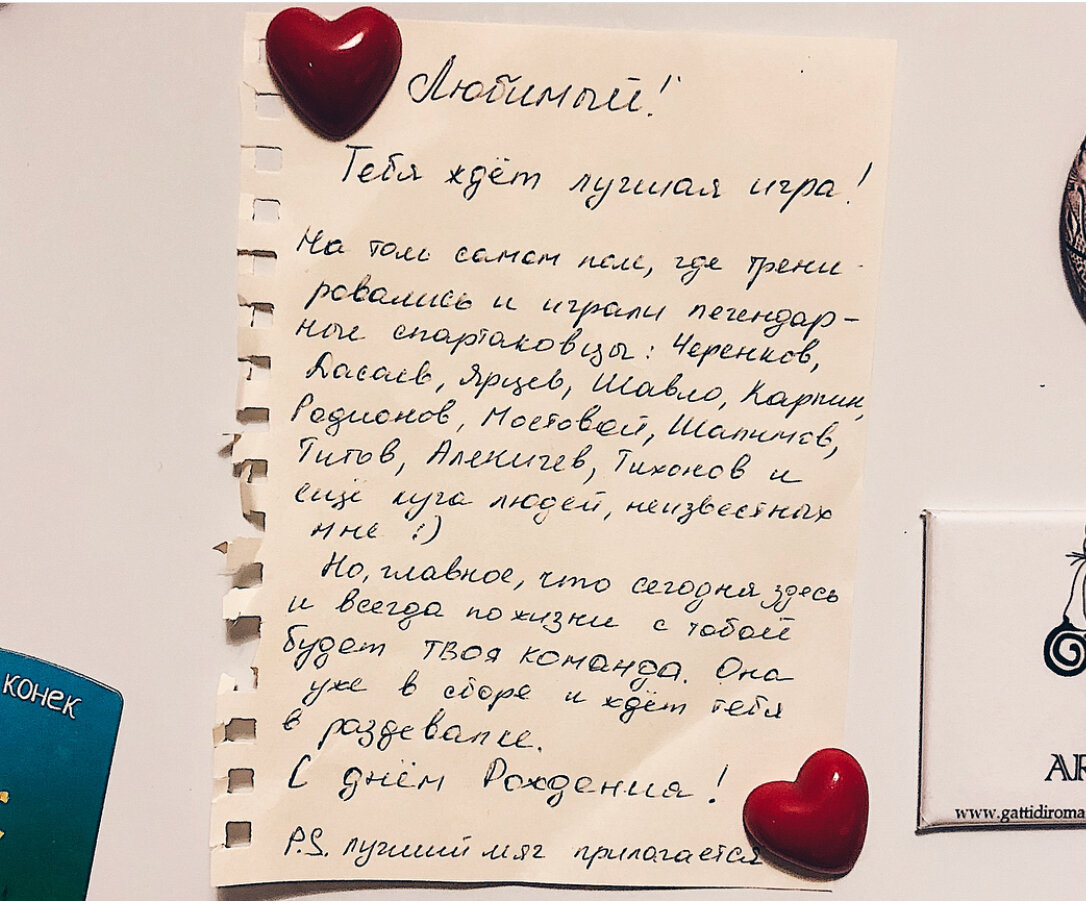 Любимый!
Тебя ждёт лучшая игра!
На том самом поле, где трени-
ровались и играли легендар-
ные спартаковцы: Черенков,
Дасаев, Ярцев, Шавло, Карпин,
Родионов, Мостовой, Шалимов,
Титов, Аленичев, Тихонов и
ещё куча людей, неизвестных
мне :)
Но, главное, что сегодня здесь
и всегда по жизни с тобой
будет твоя команда. Она
уже в сборе и ждёт тебя
в раздевалке.
С днём Рождения!
P.S. лучший мяч прилагается
конек
AR
www.gattidiroma